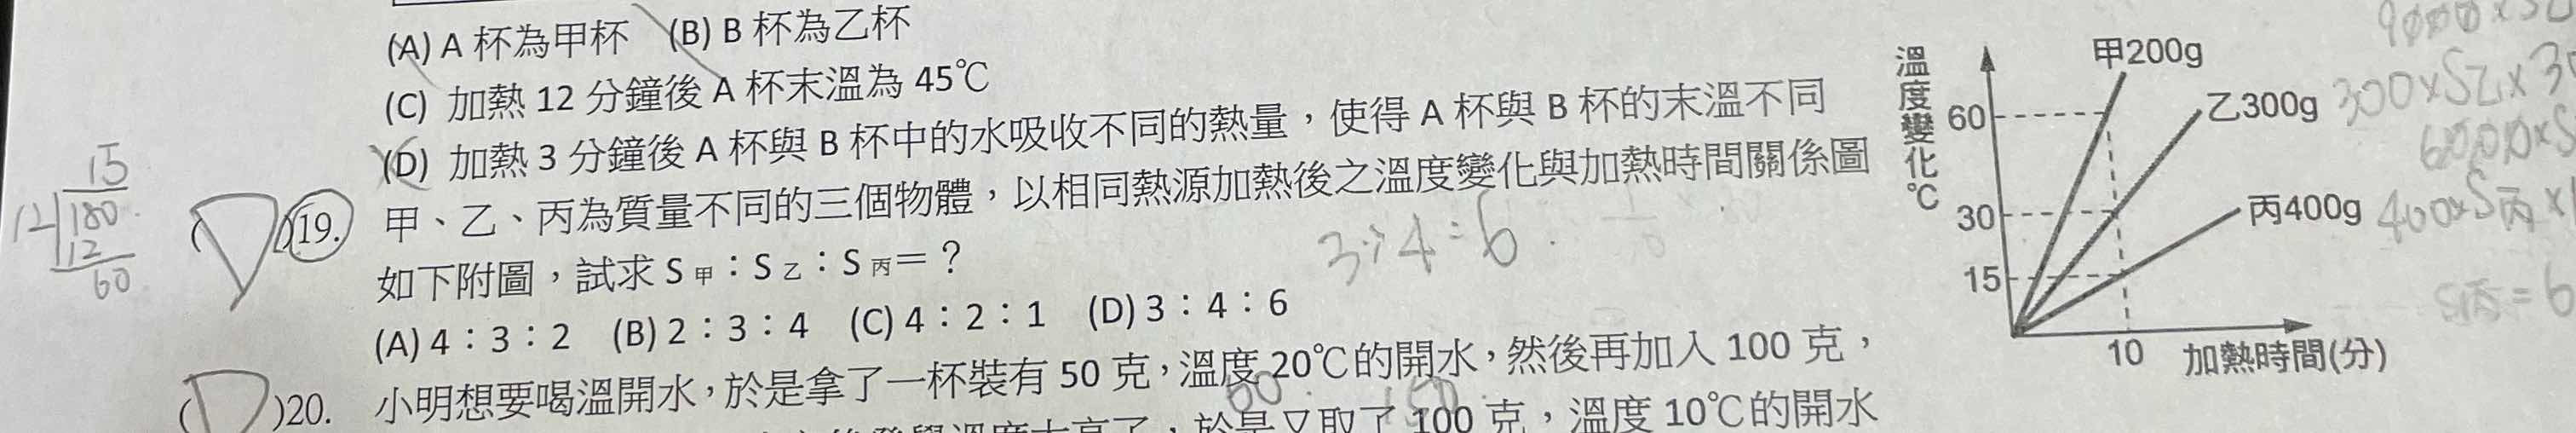 (A) A 杯為甲杯 (B) B 杯為乙杯
(C) 加熱 12 分鐘後 A 杯末溫為 45℃
(D) 加熱 3 分鐘後 A 杯與 B 杯中的水吸收不同的熱量，使得 A 杯與 B 杯的末溫不同
(D)19. 甲、乙、丙為質量不同的三個物體，以相同熱源加熱後之溫度變化與加熱時間關係圖
如下附圖，試求 S 甲：S 乙：S 丙＝？
(A) 4：3：2 (B) 2：3：4 (C) 4：2：1 (D) 3：4：6
(D)20. 小明想要喝溫開水，於是拿了一杯裝有 50 克，溫度 20℃的開水，然後再加入 100 克，
於是又取了 100 克，溫度 10℃的開水
15
12 180
12
60
3：4：6
溫度變化℃
甲200g
60
乙300g
30
丙400g
15
10 加熱時間(分)
300×S乙×3
400×S丙×1
S丙=6